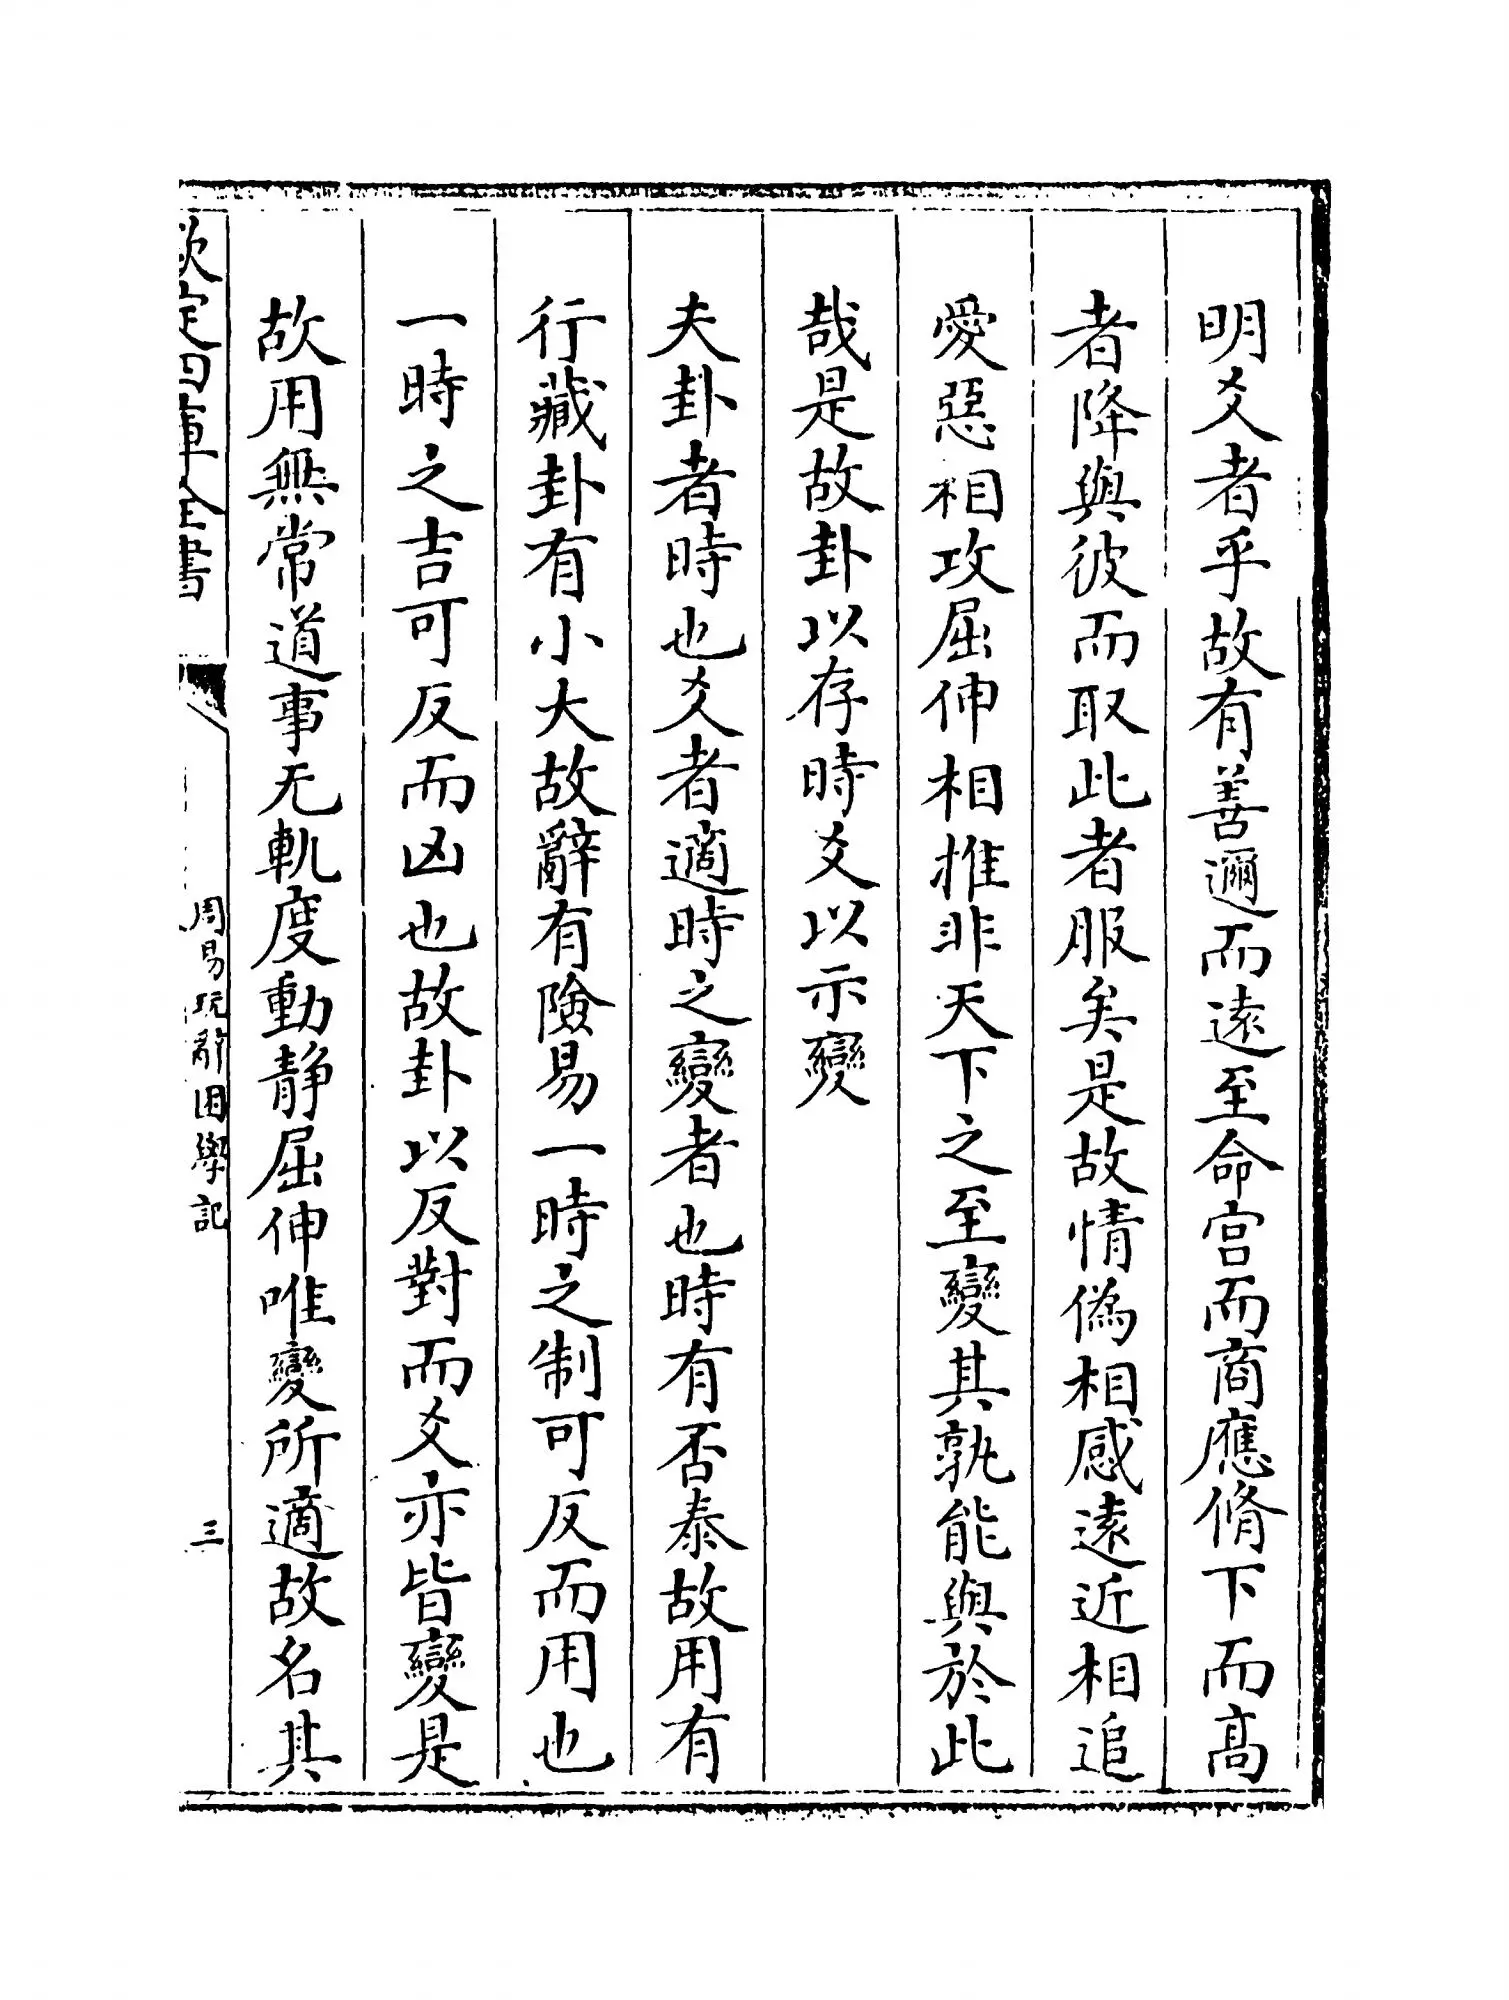 明爻者乎故有善邇而遠至命宫而商應脩下而髙
者降與彼而取此者服矣是故情偽相感遠近相追
愛惡相攻屈伸相推非天下之至變其孰能與於此
哉是故卦以存時爻以示變
夫卦者時也爻者適時之變者也時有否泰故用有
行藏卦有小大故辭有險易一時之制可反而用也
一時之吉可反而凶也故卦以反對而爻亦皆變是
故用無常道事无軌度動静屈伸唯變所適故名其
欽定四庫全書
周易玩辭困學記
三